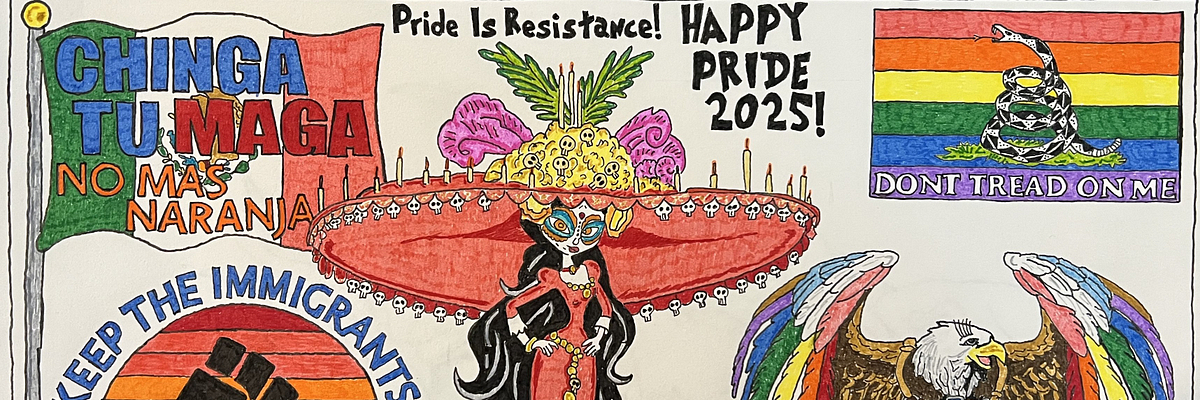 CHINGA
TU MAGA
NO MÁS
NARANJA
Pride Is Resistance!
HAPPY
PRIDE
2025!
DONT TREAD ON ME
KEEP THE IMMIGRANTS